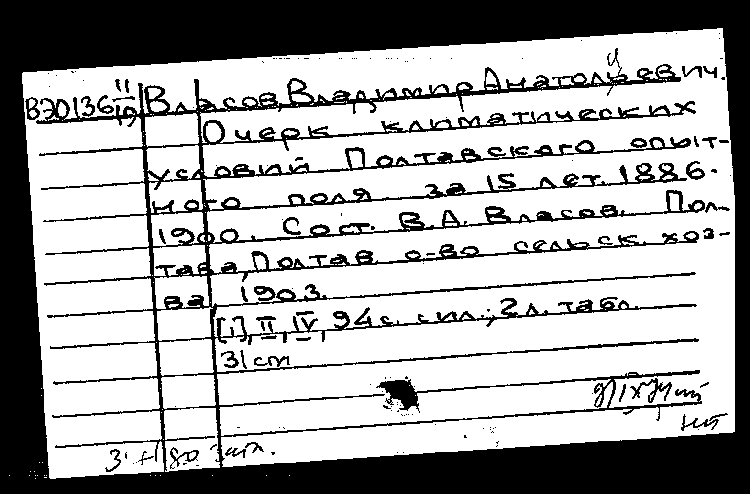 ВЭ0136 II/19 Власов, Владимир Анатольевич.
Очерк климатических
условий Полтавского опыт-
ного поля за 15 лет. 1886-
1900. Сост. В.А. Власов. Пол-
тава, Полтав. о-во сельск. хоз-
ва, 1903.
[1], II, IV, 94 с. с ил.; 2 л. табл.
31 cm